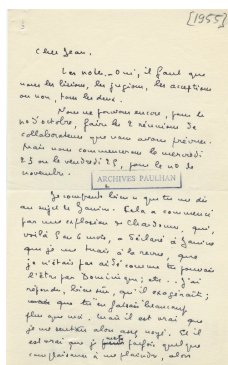 [1955]
Cher Jean,
Les notes_ Oui, il faut que
nous les lisions, les jugions, les acceptions
ou non, tous les deux.
Nous ne pouvons encore, pour le
no d'octobre, faire les 2 réunions de
collaborateurs que nous avons prévues.
Mais nous commencerons le mercredi
23 ou le vendredi 25, pour le no de
novembre.
ARCHIVES PAULHAN
Je comprends bien ce que tu me dis
au sujet de Janine. Cela a commencé
par une explosion de Chardonne, qui,
voilà 7 ou 6 mois, a déclaré à Janine
que je me tuais à la revue, que
je n'étais pas aidé comme tu pouvais
l'être par Dominique; etc.. J'ai
répondu, bien sûr, qu'il exagérait;
que tu en faisais beaucoup
plus que moi. Mais il est vrai que
je me sentais alors assez usé. Et il
est vrai que je mets parfois quelque
complaisance à me plaindre, alors